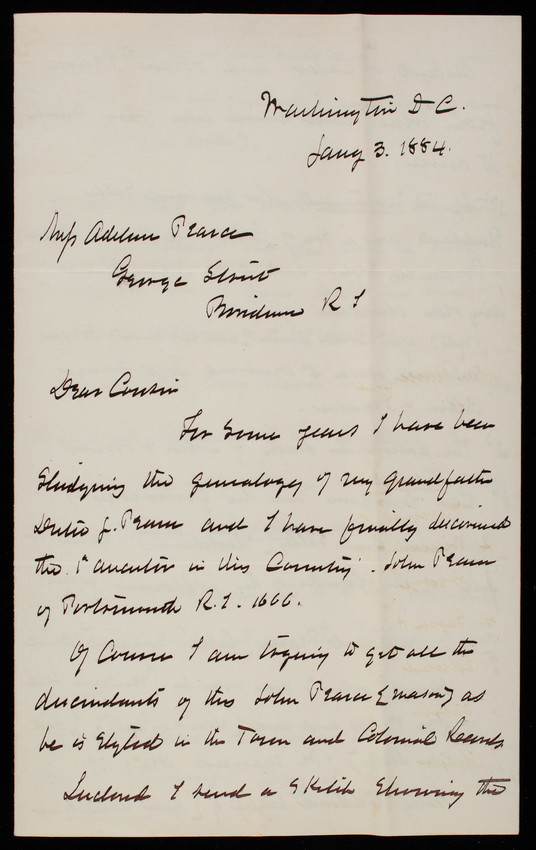 Washington D C.
Jany 3. 1884.
Miss Adeline Pearce
George Street
Providence R I
Dear Cousin
For some years I have been
studying the genealogy of my grandfather
Dutee J. Pearce and I have finally discovered
the 1st ancestor in this Country. John Pearce
of Portsmouth R.I. 1666.
Of Course I am trying to get all the
descendants of this John Pearce (mason) as
he is styled in the Town and Colonial Records
Inclosed I send a Sketch Showing the